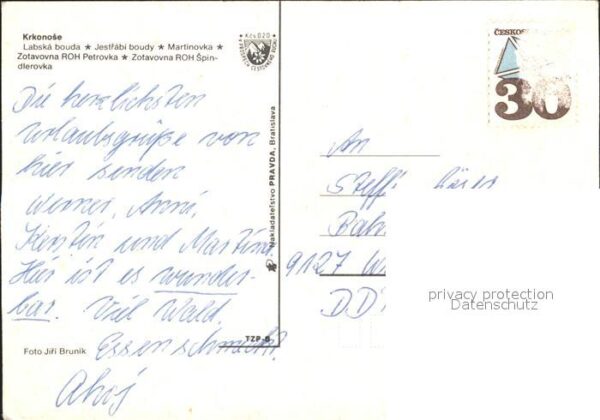 Krkonoše
Labská bouda ★ Jestřábí boudy ★ Martinovka ★
Zotavovna ROH Petrovka ★ Zotavovna ROH Špin-
dlerovka
Kčs 0,20
Die herzlichsten
Urlaubsgrüße von
hier senden
Werner, Anni,
Kerstin und Martina.
Hier ist es wunder-
bar. Viel Wald.
Essen schmeckt.
Ahoj
Foto Jiří Bruník
Nakladatelstvo PRAVDA, Bratislava
TZP-8
ČESKOS
30
An
Steffi
Bah
9127 W
DD
privacy protection
Datenschutz